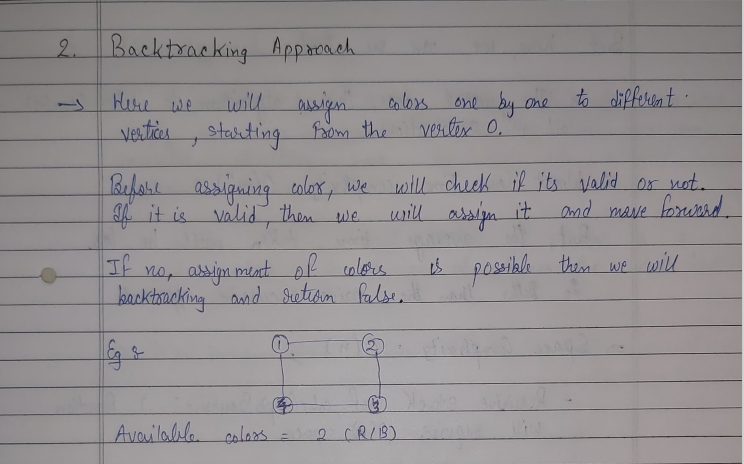 2. Backtracking Approach
→ Here we will assign colors one by one to different
vertices, starting from the vertex 0.
Before assigning color, we will check if its valid or not.
If it is valid, then we will assign it and move forward.
If no, assignment of colors is possible then we will
backtracking and return false.
Eg :
1 2
4 3
Available colors = 2 (R/B)